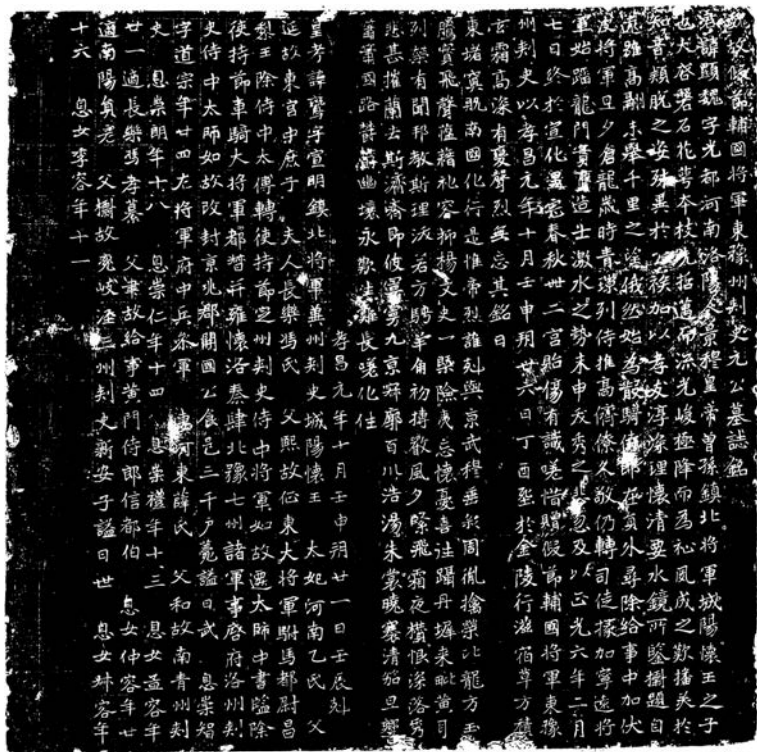 魏故假節輔國將軍東豫州刾史元公墓誌銘
君諱顯魏字光都河南洛陽人景穆皇帝曾孫鎮北將軍城陽懷王之子
也大啓磐石花萼本枝招邁而流光峻極降而爲祉夙成之歎播美於
知音穎脫之姿殊異於公族加以孝友淳深理懷清要水鏡所鑒樹題自
遠雖高翮未舉千里之望俄然始爲散騎郎在員外尋除給事中加伏
波將軍旦夕倉龍歲時青璅列侍推高儕僚久敬仍轉司徒掾加寧遠將
軍始躡龍門實膺造士激水之勢未申夭秀之悲忽及以正光六年二月
七日終於宣化里宅春秋卌二宮貽傷有識嗟惜贈假節輔國將軍東豫
州刾史以孝昌元年十月壬申朔廿六日丁酉窆於金陵行滋宿草方積
玄霜高深有憂聲烈無忘其銘曰
東堵寞南國化行是惟帝烈誰刾與京武穆垂彩周胤擒榮比龍方玉
騰實飛聲蘊藉礼容抑揚文史一槩險夷忘懷憂喜往躡丹墀來毗黃司
列棨有聞邦教斯理方騁羊角初摶歡風夕緊飛霜夜攢恨深落秀
悲甚摧蘭去斯濟濟即彼漫漫九京寥廓百川浩湯朱裳曉褰清笳旦響
蕭蕭國路欝欝幽壤永歎生離長嗟化往
孝昌元年十月壬申朔廿一日壬辰刻
皇考諱鸞字宣明鎮北將軍冀州刾史城陽懷王 太妃河南乙氏 父
延故東宮中庶子 夫人長樂馮氏 父熙故征東大將軍駙馬都尉昌
黎王除侍中太傅轉使持節定州刾史侍中將軍如故遷太師中書監除
使持節車騎大將軍都督并雍懷洛秦肆北豫七州諸軍事啓府洛州刾
史侍中太師如故改封京兆郡開國公食邑三千戶薨謚曰武 息崇智
字道宗年廿四左將軍府中兵參軍 妻河東薛氏 父和故南青州刾
史 息崇朗年十八 息崇仁年十四 息崇禮年十三 息女孟容年
廿一 適長樂馮孝纂 父聿故給事黃門侍郎信都伯 息女仲容年廿
適南陽員彥 父樹故兗岐涇三州刾史新安子謚曰世 息女叔容年
十六 息女季容年十一